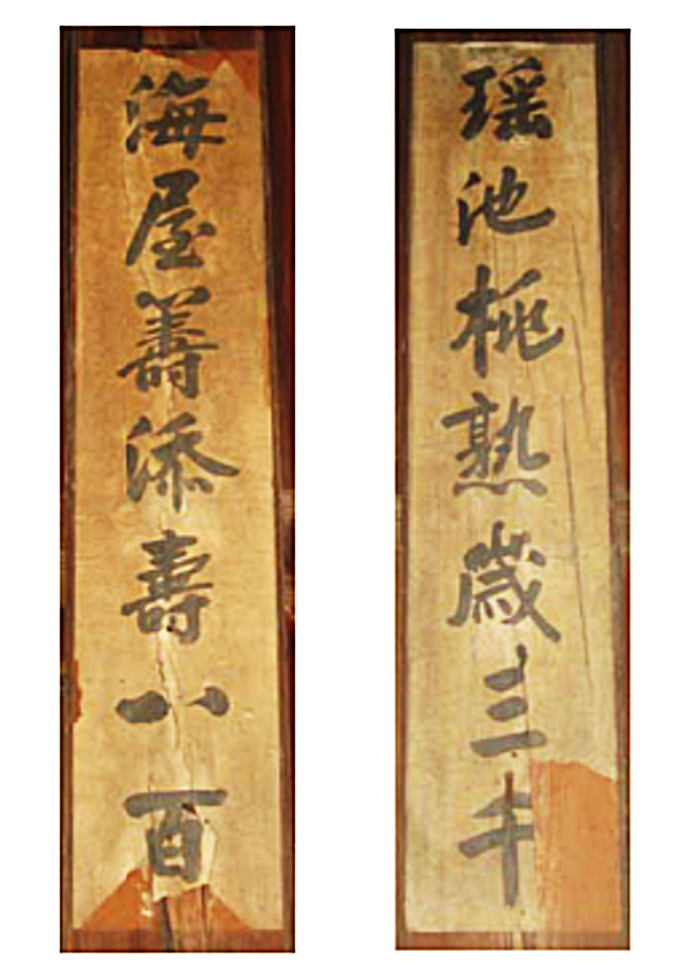 瑶池桃熟歲三千
海屋籌添壽八百